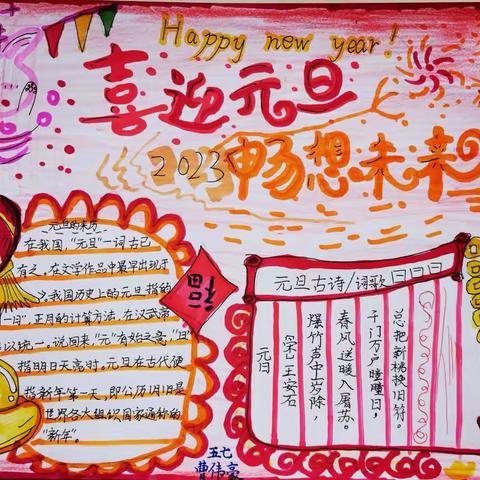 Happy new year!
喜迎元旦
2023 畅想未来
元旦的来历
在我国,"元旦"一词古已
有之,在文学作品中最早出现于
义我国历史上的元旦指的
一日",正月的计算方法,在汉武帝
以统一,说回来"元"有始之意,"旦"
指明日天亮时,元旦在古代使
指新年第一天,即公历1月1日是
世界各大组织国家通称的
"新年"。
福
元旦古诗/词歌
元日
[宋]王安石
爆竹声中一岁除,
春风送暖入屠苏。
千门万户曈曈日,
总把新桃换旧符。
五七
曹伟豪